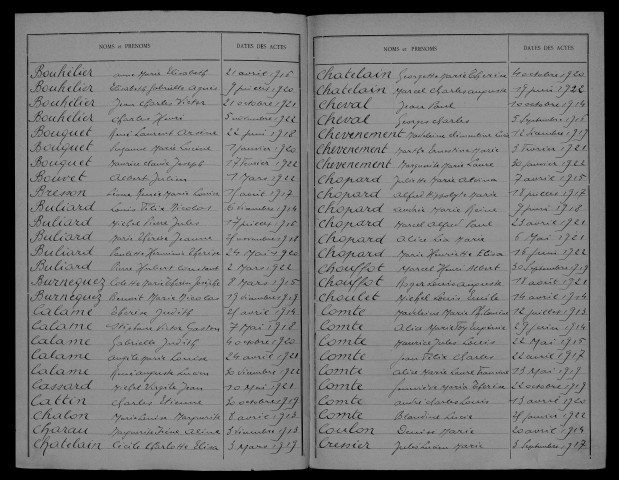 NOMS et PRÉNOMS DATES DES ACTES
Bouhélier Anne Marie Elisabeth 21 avril 1916
Bouhélier Elisabeth Gabrielle Agnès 9 1920
Bouhélier Jean Charles Victor 21 octobre 1921
Bouhélier Charles Henri 5 1922
Bouquet René Laurent Arsène 22 juin 1918
Bouquet Suzanne Marie Lucienne 1 janvier 1920
Bouquet Maurice Claude Joseph 17 février 1922
Bouvet Albert Julien 1 Mars 1922
Bresson Marie Louise avril 1917
Buliard Louis Félix Nicolas 6 1914
Buliard Michel Pierre Jules 17 1916
Buliard Marie Thérèse Jeanne novembre 1918
Buliard Paulette Hermine Thérèse 24 Mai 1920
Buliard Pierre Hubert Constant 2 Mars 1922
Burnéquez Colette Marie Joseph 8 Mars 1915
Burnéquez Benoit Marie Nicolas 19 1919
Calame Thérèse Judith 21 avril 1914
Calame Stéphane Victor Gaston 7 Mai 1918
Calame Gabrielle Judith 4 octobre 1920
Calame Marie Louise 24 avril 1921
Calame Auguste Lucien 30 1922
Cassard Michel Virgile Jean 10 Mai 1921
Cattin Charles Etienne 20 octobre 1919
Chalon Marie Louise Marguerite 8 avril 1913
Charau Irène Aline 3 1913
Chatelain Cécile Charlotte Elise 3 Mars 1917
NOMS et PRÉNOMS DATES DES ACTES
Chatelain Georgette Marie 4 octobre 1920
Chatelain Marcel Charles Auguste 19 juin 1922
Cheval Jean Paul 10 octobre 1914
Cheval Georges Charles 5 Septembre 1916
Chevenement Madeleine 16 1917
Chevenement Marthe Ernestine Marie 3 février 1921
Chevenement Marguerite Marie Laure 30 janvier 1922
Chopard Juliette Marie 7 avril 1915
Chopard Alfred Hippolyte Marie 18 1917
Chopard Andrée Marie Reine 9 juin 1918
Chopard Marcel Alfred Paul 23 avril 1921
Chopard Alice Léa Marie 6 Mai 1921
Chopard Marie Henriette Elisa 16 juin 1922
Chouffot Marcel Henri Albert 30 Septembre 1919
Chouffot Roger Louis Auguste 18 août 1921
Choulet Michel Louis Emile 14 avril 1914
Comte Madeleine Marie Philomène 12 juillet 1913
Comte Alice Marie Eugénie 29 juin 1914
Comte Maurice Jules Louis 22 Mai 1915
Comte Jean Félix Charles 22 avril 1917
Comte Alice Marie Laure 13 Mai 1919
Comte Marie Thérèse 22 octobre 1919
Comte André Charles Louis 13 avril 1920
Comte Blandine Lucie 21 janvier 1922
Coulon Denise Marie 20 avril 1914
Cressier Jules Lucien Marie 3 Septembre 1917